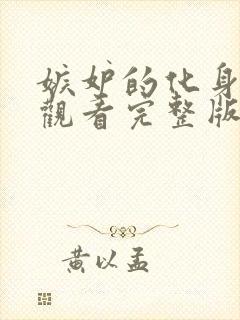 嫉妒的化身
觀看完整版
黃以孟